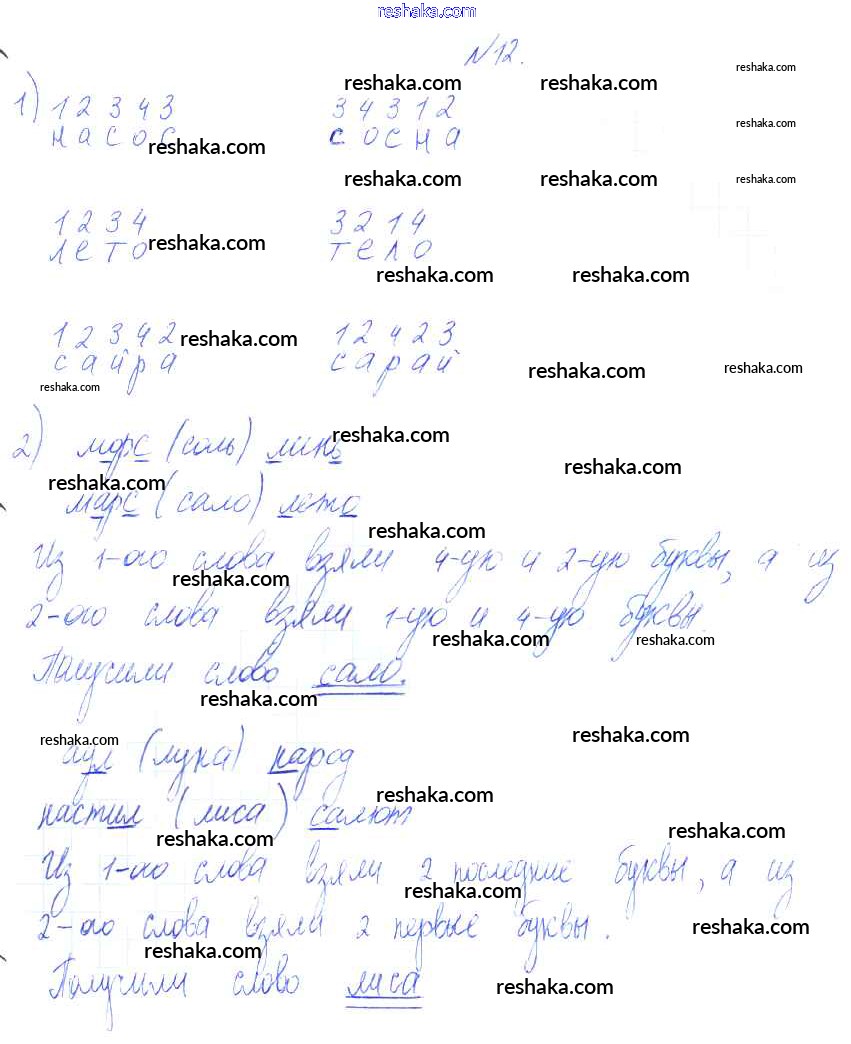 reshaka.com
№12.
reshaka.com
reshaka.com reshaka.com
1) 1 2 3 4 3 3 4 3 1 2
reshaka.com
насос сосна
reshaka.com
reshaka.com reshaka.com reshaka.com
1 2 3 4 3 2 1 4
лето тело
reshaka.com
reshaka.com reshaka.com
1 2 3 4 2 1 2 4 2 3
reshaka.com
сайра сарай
reshaka.com reshaka.com
reshaka.com
2) морс (соль) линь
reshaka.com
reshaka.com
reshaka.com
марс (сало) лето
reshaka.com
Из 1-ого слова взяли 4-ую и 2-ую буквы, а из
reshaka.com
2-ого слова взяли 1-ую и 4-ую буквы.
reshaka.com reshaka.com
Получили слово сало.
reshaka.com
reshaka.com reshaka.com
аул (луна) народ
reshaka.com
настил (лиса) салют
reshaka.com reshaka.com
Из 1-ого слова взяли 2 последние буквы, а из
reshaka.com
2-ого слова взяли 2 первые буквы.
reshaka.com
reshaka.com
Получили слово лиса
reshaka.com